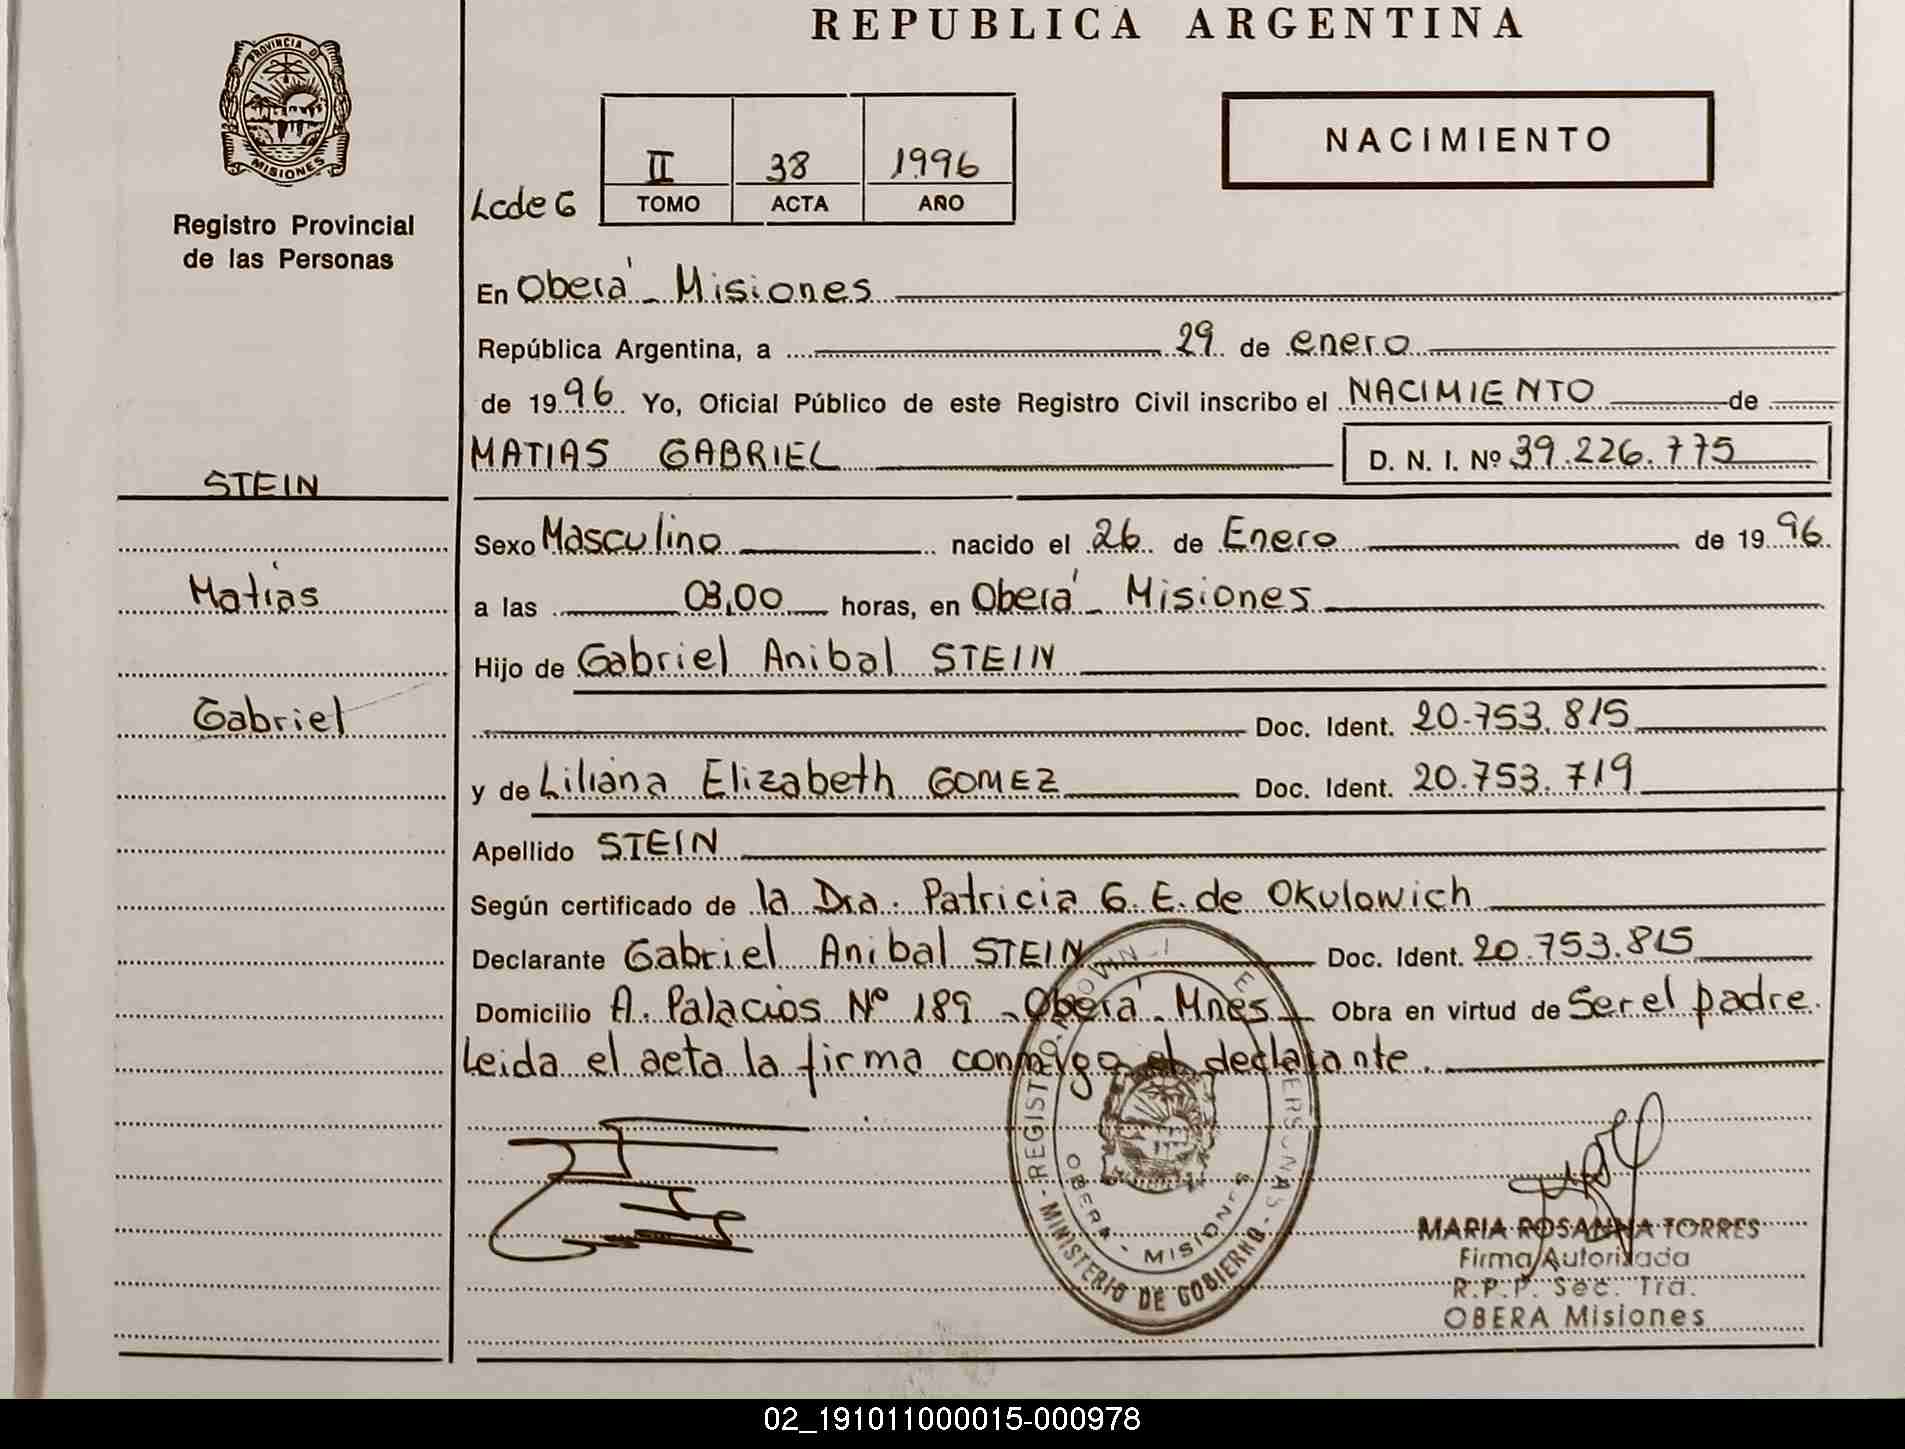 REPUBLICA ARGENTINA
PROVINCIA D
MISIONES
Registro Provincial
de las Personas
NACIMIENTO
LcdeG
II 38 1996
TOMO ACTA AÑO
En Oberá - Misiones
República Argentina, a 29 de enero
de 1996 Yo, Oficial Público de este Registro Civil inscribo el NACIMIENTO de
MATIAS GABRIEL D. N. I. Nº 39.226.775
STEIN
Matías
Gabriel
Sexo Masculino nacido el 26 de Enero de 1996.
a las 03,00 horas, en Oberá - Misiones
Hijo de Gabriel Anibal STEIN
Doc. Ident. 20.753.815
y de Liliana Elizabeth GOMEZ Doc. Ident. 20.753.719
Apellido STEIN
Según certificado de la Dra. Patricia G. E. de Okulowich
Declarante Gabriel Anibal STEIN Doc. Ident. 20.753.815
Domicilio A. Palacios Nº 189 - Oberá - Mnes Obra en virtud de Ser el padre.
Leida el acta la firma conmigo el declarante.
OBERA - MISIONES
- MINISTERIO DE GOBIERNO -
MARIA ROSANNA TORRES
Firma Autorizada
R.P.P. Sec. Tra.
OBERA Misiones
02_191011000015-000978